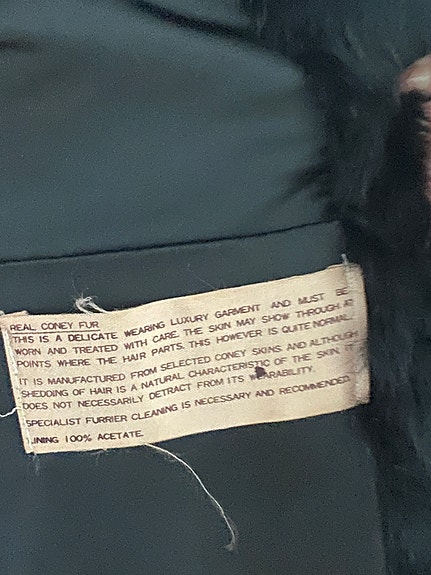 REAL CONEY FUR
THIS IS A DELICATE WEARING LUXURY GARMENT AND MUST BE
WORN AND TREATED WITH CARE. THE SKIN MAY SHOW THROUGH AT
POINTS WHERE THE HAIR PARTS. THIS HOWEVER IS QUITE NORMAL.
IT IS MANUFACTURED FROM SELECTED CONEY SKINS AND ALTHOUGH
SHEDDING OF HAIR IS A NATURAL CHARACTERISTIC OF THE SKIN, IT
DOES NOT NECESSARILY DETRACT FROM ITS WEARABILITY.
SPECIALIST FURRIER CLEANING IS NECESSARY AND RECOMMENDED.
LINING 100% ACETATE.